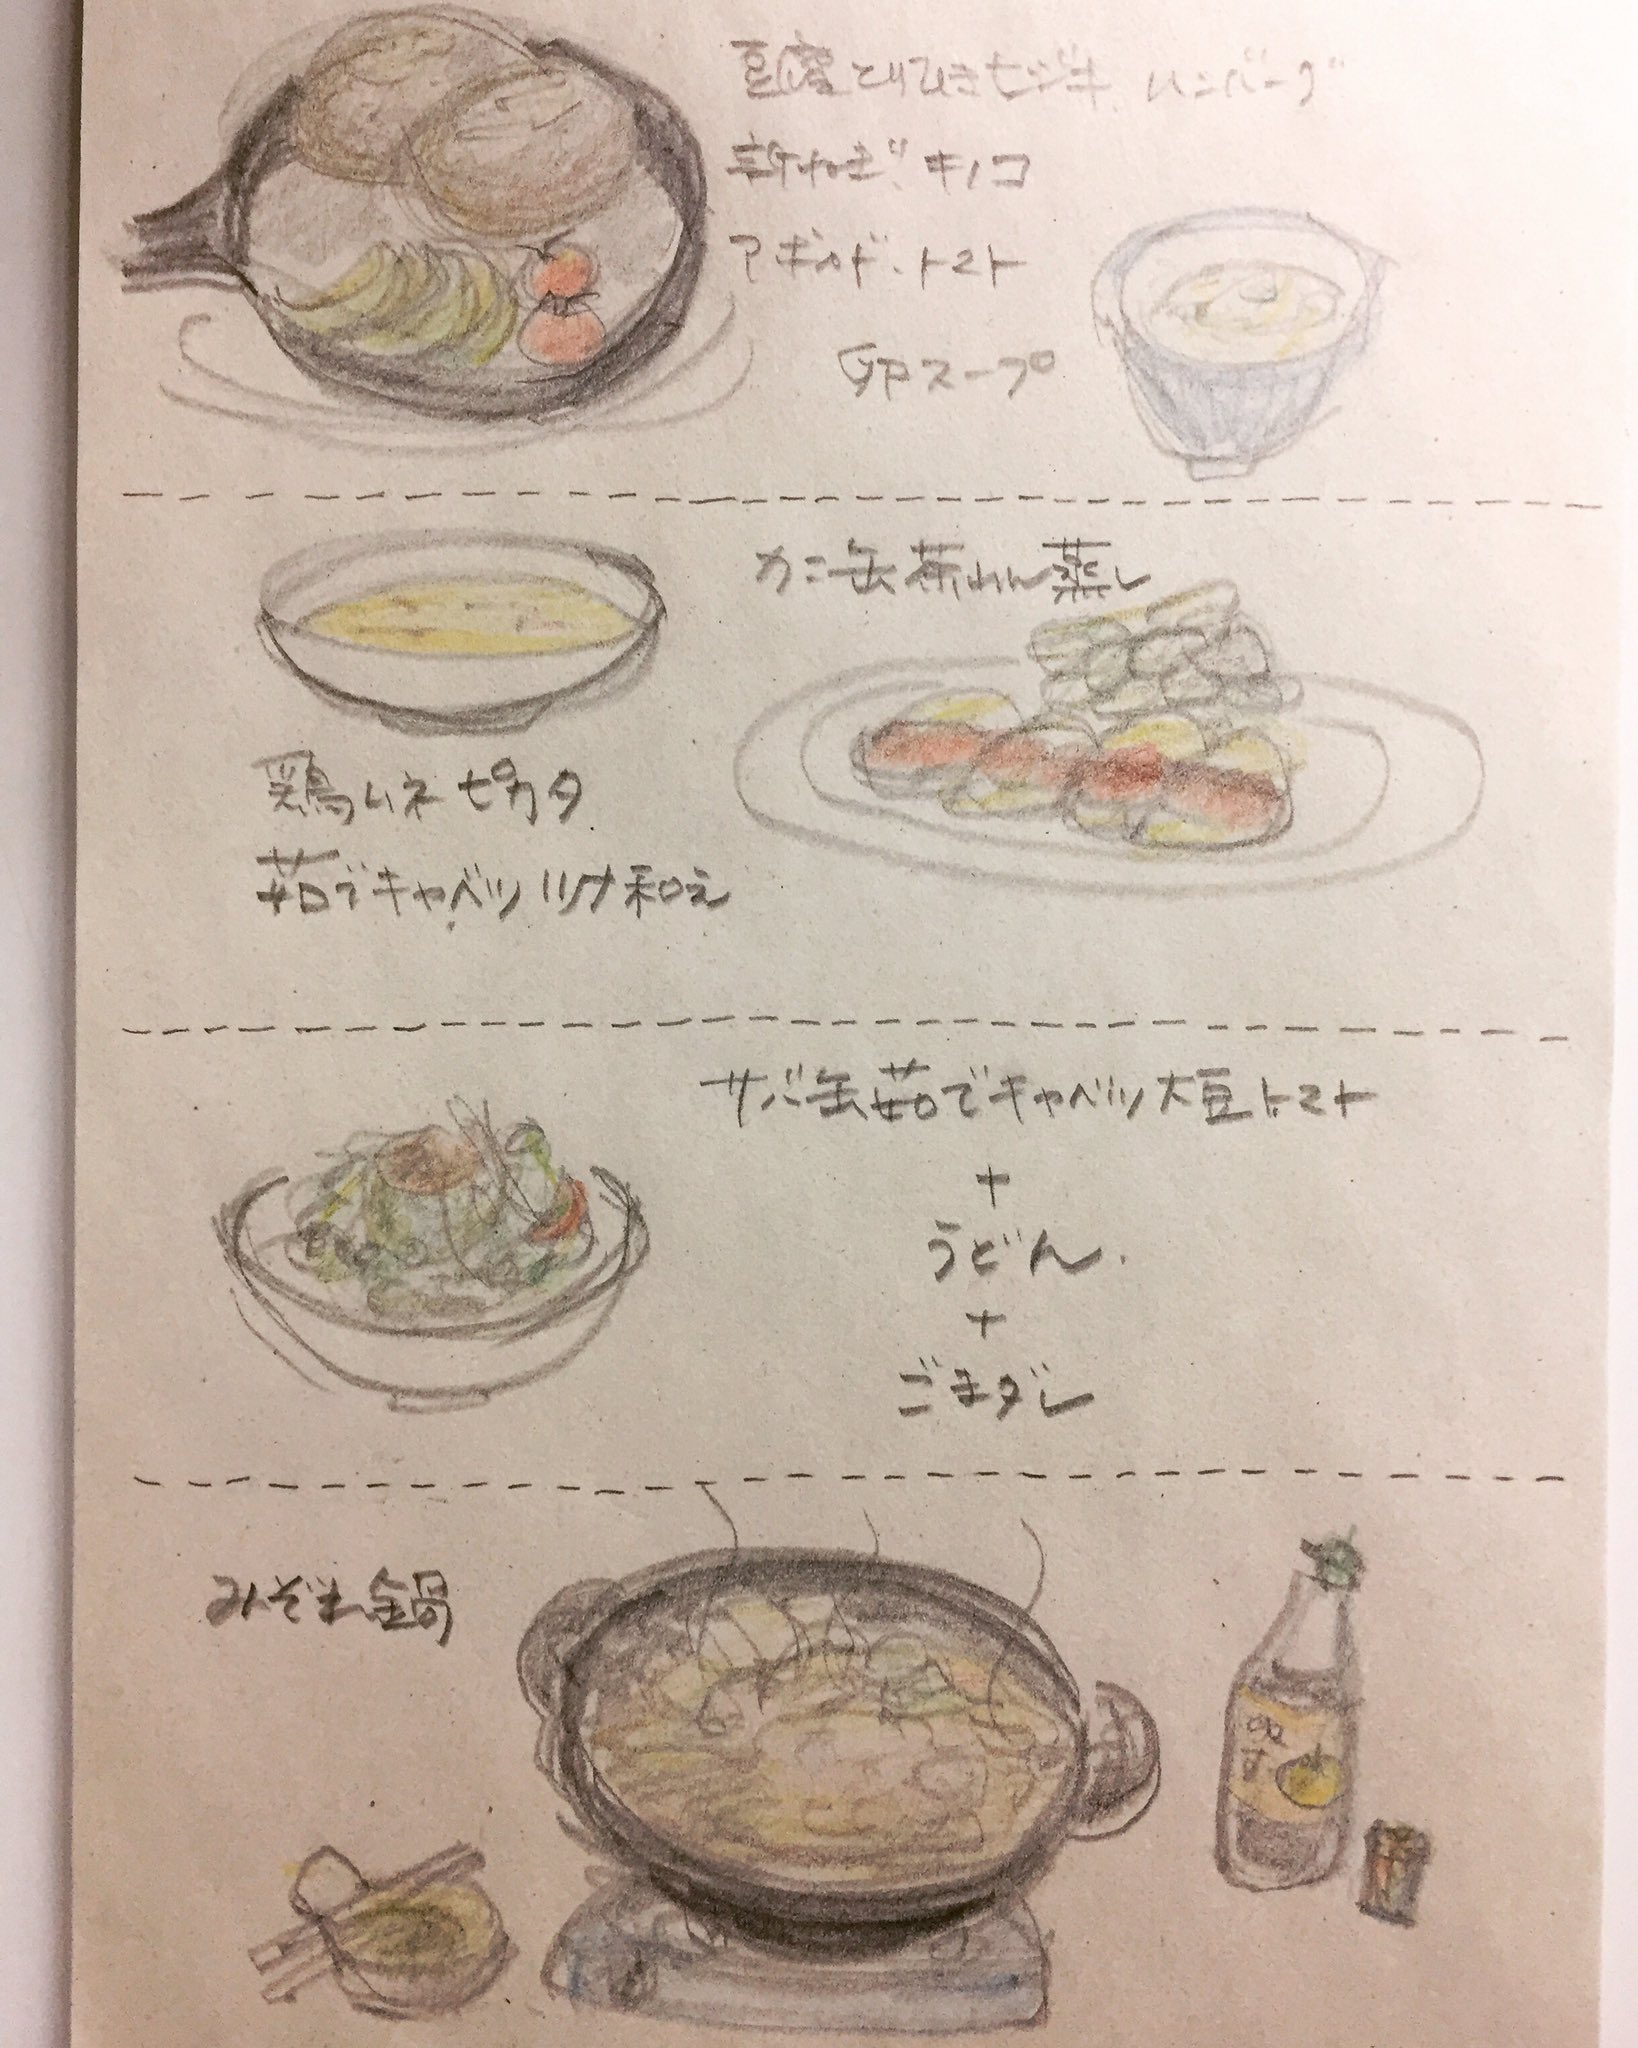 豆腐とりひきヒジキ、ハンバーグ
新ねぎ、キノコ
アボカド、トマト
卵スープ
カニ缶茶わん蒸し
鶏ムネピカタ
茹でキャベツツナ和え
サバ缶茹でキャベツ大豆トマト
+
うどん.
+
ごまダレ
みぞれ鍋